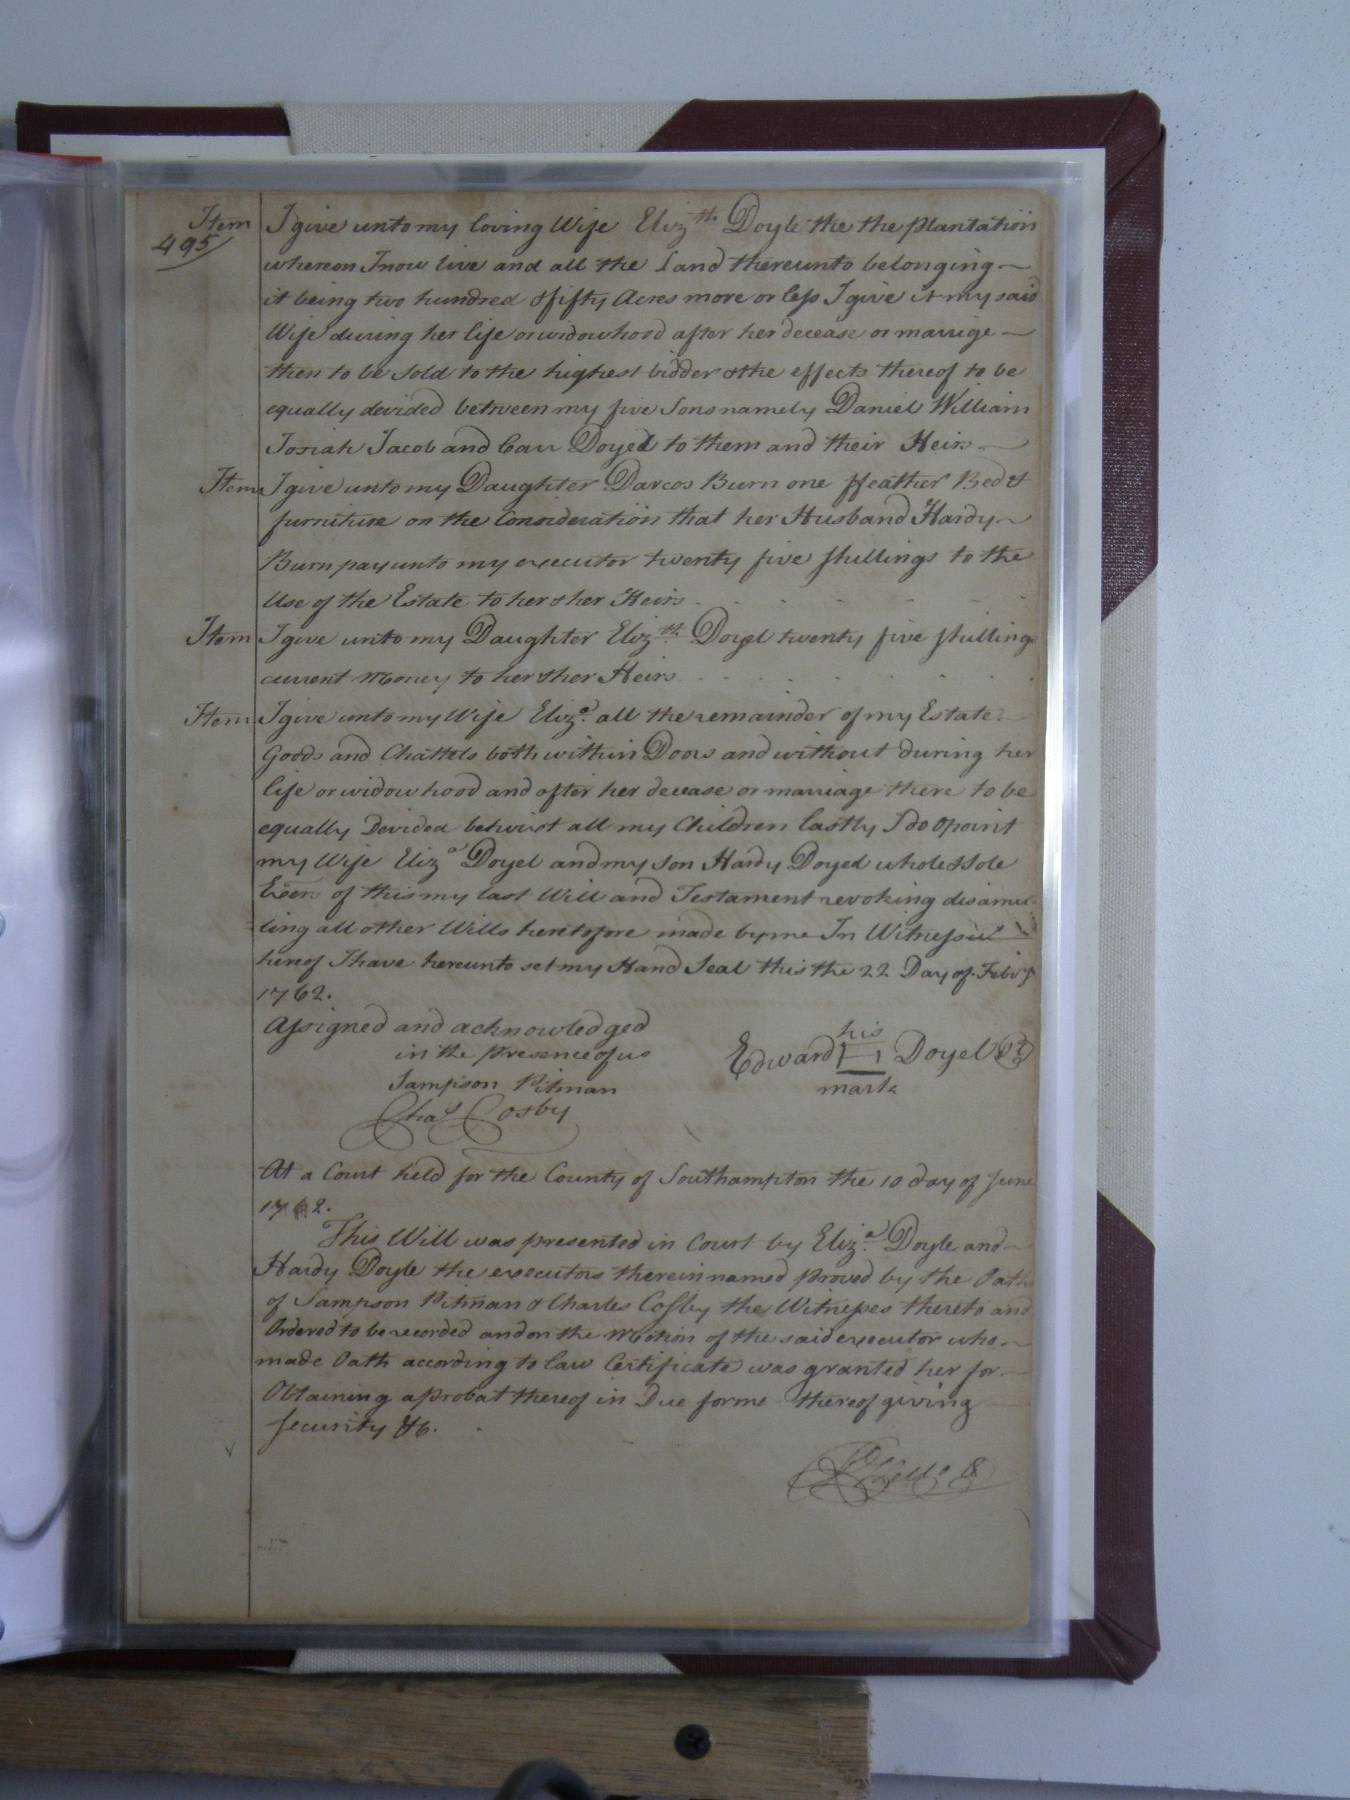 Item I give unto my loving Wife Eliz.th Doyle the the Plantation
495
whereon I now live and all the Land thereunto belonging
it being two hundred & fifty Acres more or less I give it my said
Wife during her life or widowhood after her decease or marrige
then to be sold to the highest bidder & the effects thereof to be
equally devided between my five Sons namely Daniel William
Josiah Jacob and Doyel to them and their Heirs
Item I give unto my Daughter Darcos Burn one ffeather Bed &
furniture on the Consideration that her Husband Hardy
Burn pay unto my executor twenty five shillings to the
Use of the Estate to her & her Heirs
Item I give unto my Daughter Eliz.th Doyel twenty five shillings
current Money to her & her Heirs
Item I give unto my Wife Eliz.a all the remainder of my Estate
Goods and Chattels both within Doors and without during her
life or widow hood and after her decease or marriage there to be
equally Devided betwixt all my Children lastly I do apoint
my Wife Eliz.a Doyel and my son Hardy Doyel whole & Sole
Exors of this my last Will and Testament revoking disannu
ling all other Wills heretofore made by me In Witness w
hereof I have hereunto set my Hand Seal this the 22 Day of Feb.y
1762.
Assigned and acknowledged
in the presence of us
Sampson Pitman
Cha.s Cosby
his
Edward H Doyel
mark
At a Court held for the County of Southampton the 10 day of June
1762.
This Will was presented in Court by Eliz.a Doyle and
Hardy Doyle the executors therein named proved by the Oath
of Sampson Pitman & Charles Cosby the Witnesses thereto and
Ordered to be recorded and on the Motion of the said executor who
made Oath according to Law Certificate was granted her for
Obtaining a Probat thereof in Due forme thereof giving
security &c.